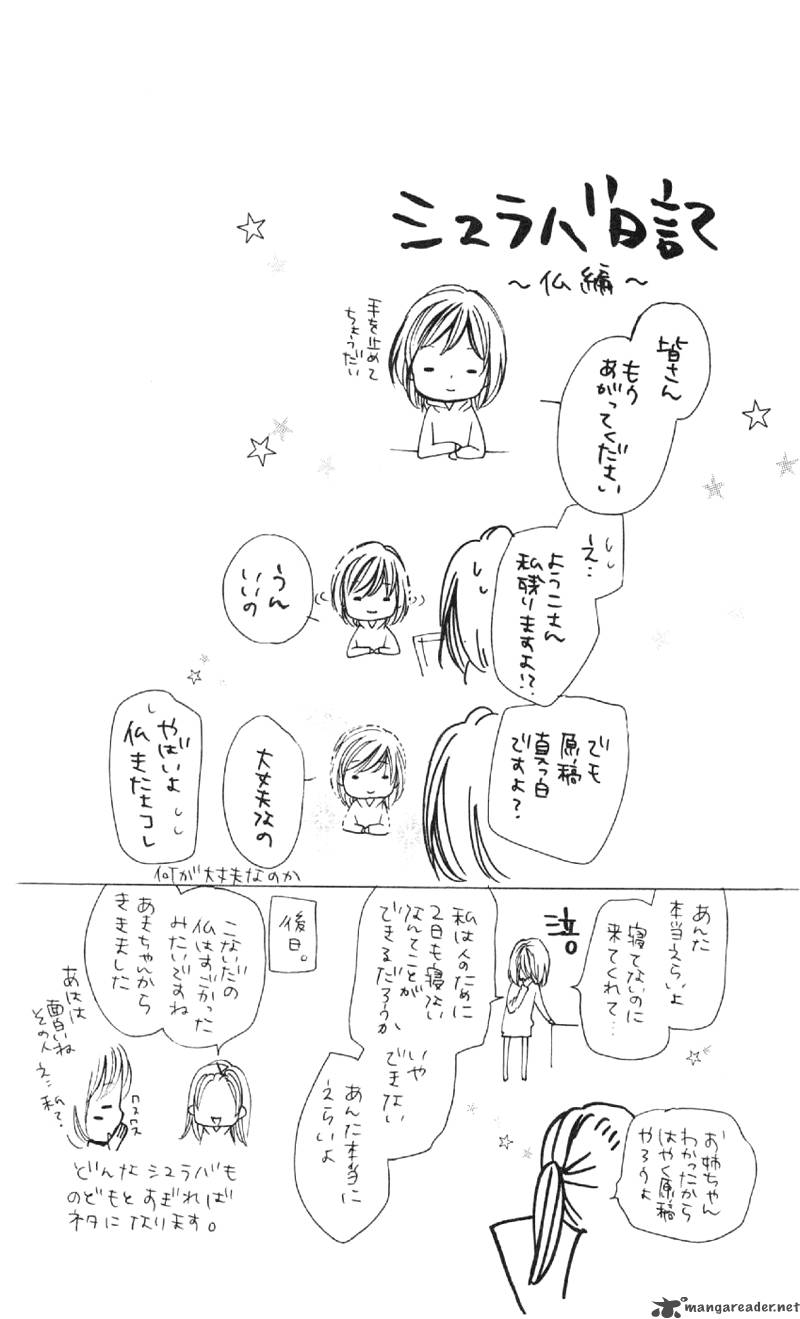 シュラバ日記
～仏編～
皆さん
もう
あがってください
手を止めて
ちょうだい
え…
ようこさん
私残りますよ!?
うん
いいの
でも
原稿
真っ白
ですよ?
大丈夫なの
やばいよ
仏きたコレ
何が大丈夫なのか
あんた
本当えらいよ
寝てないのに
来てくれて…
泣。
お姉ちゃん
わかったから
はやく原稿
やろうよ
私は人のために
2日も寝ない
なんてことが
できるだろうか
いや
できない
あんた本当に
えらいよ
後日。
こないだの
仏はすごかった
みたいですね
あきちゃんから
ききました
あはは
面白いね
その人
え…私?
クスクス
どんなシュラバも
のどもとすぎれば
ネタになります。
mangareader.net